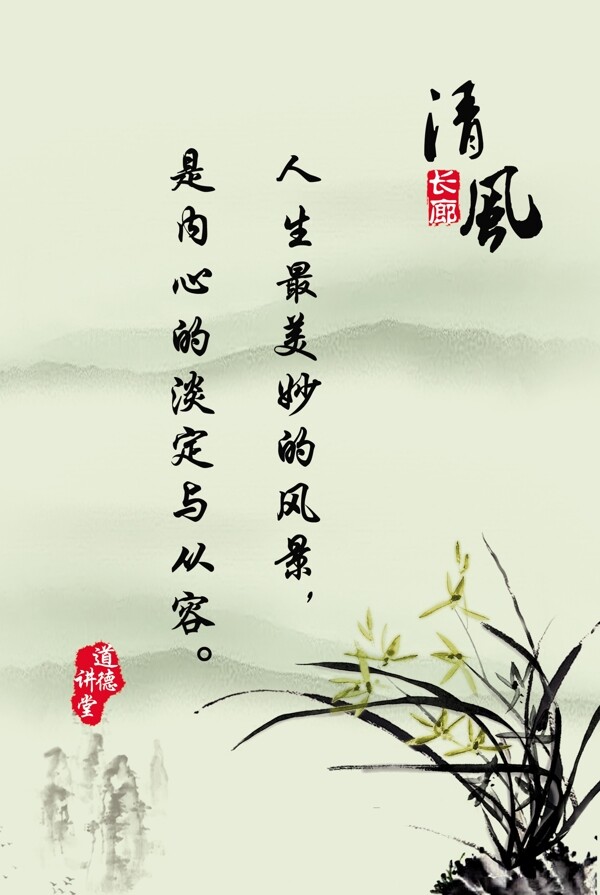 清風
长廊
人生最美妙的风景，
是内心的淡定与从容。
道德
讲堂